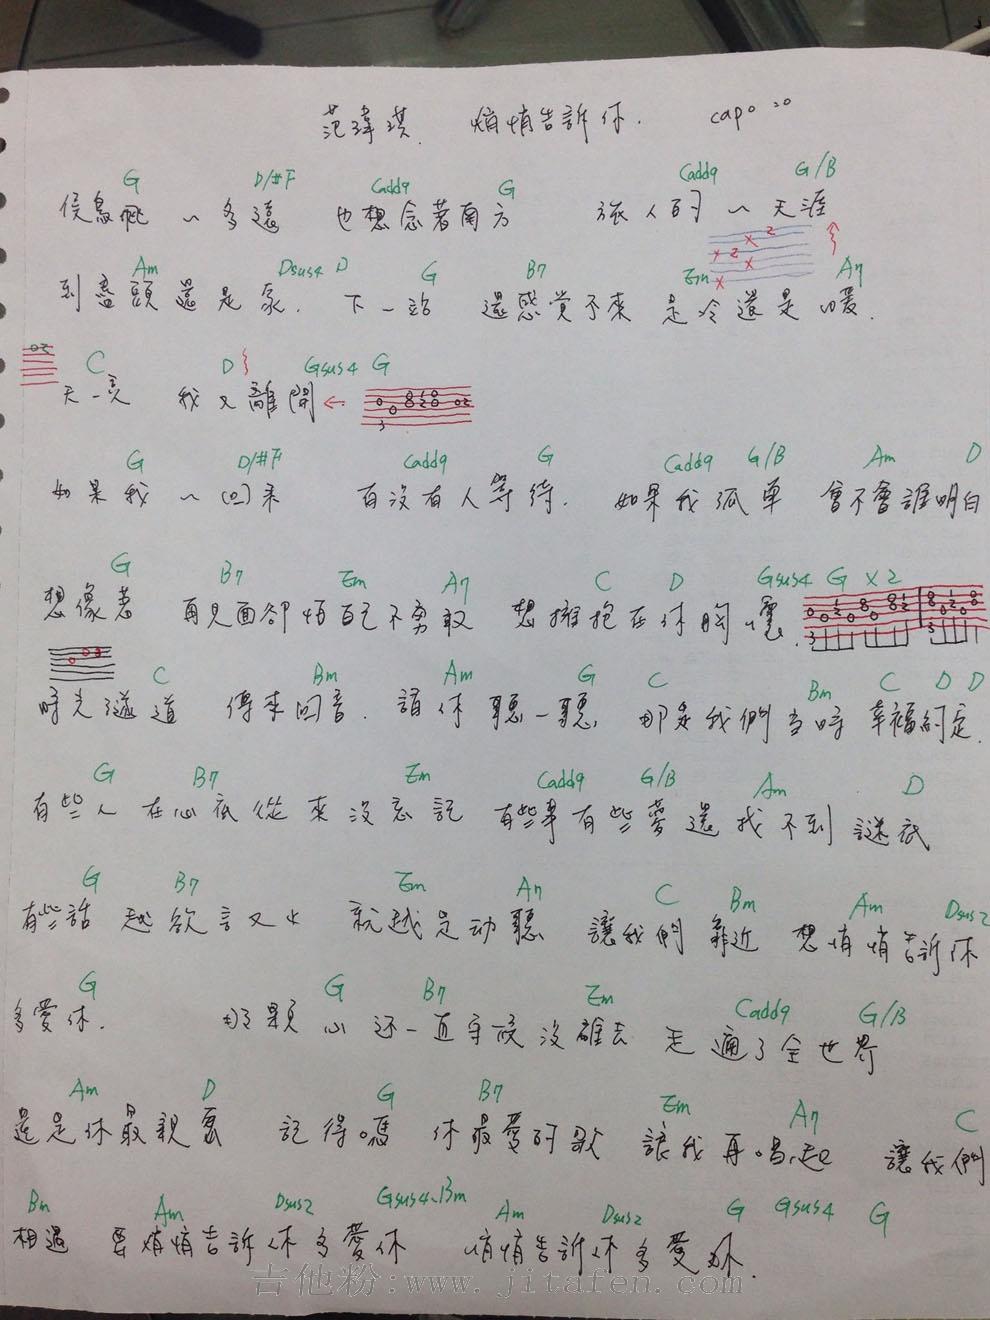 范瑋琪. 悄悄告訴你. capo 20
G D/#F Cadd9 G Cadd9 G/B
候鳥飛 ~ 多遠 也想念著南方 旅人的 ~ 天涯
Am Dsus4 D G B7 Em A7
到盡頭還是家. 下一站 還感覺不來 是冷還是暖.
C D Gsus4 G
天一亮 我又離開
G D/#F Cadd9 G Cadd9 G/B Am D
如果我 ~ 回來 有沒有人等待. 如果我孤單 會不會誰明白
G B7 Em A7 C D Gsus4 G X2
想像著 再見面卻怕自己不勇敢 想擁抱在你胸懷.
C Bm Am G C Bm C D D
時光隧道 傳來回音. 請你聽一聽 那是我們當時幸福約定.
G B7 Em Cadd9 G/B Am D
有些人在心底從來沒忘記 有些事有些夢還找不到謎底
G B7 Em A7 C Bm Am Dsus2
有些話越欲言又止 就越是动聽 讓我們靠近 想悄悄告訴你
G G B7 Em Cadd9 G/B
多愛你. 那顆心还一直守候沒離去 走遍了全世界
Am D G B7 Em A7 C
還是你最親密 記得嗎 你最愛的歌 讓我再唱起 讓我們
Bm Am Dsus2 Gsus4 Bm Am Dsus2 G Gsus4 G
相遇 要悄悄告訴你多愛你 悄悄告訴你多愛你.
吉他粉:www.jitafen.com